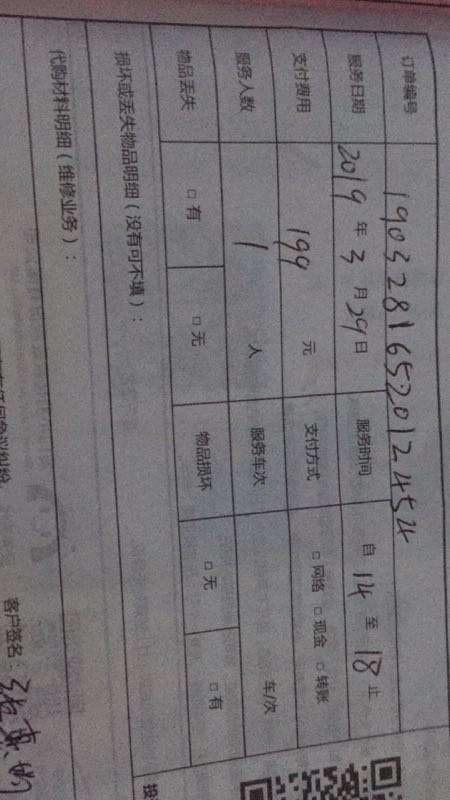 订单编号 1903281652012454
服务日期 2019 年 3 月 29 日 服务时间 自 14 至 18 止
支付费用 199 元 支付方式 □ 网络 □ 现金 □ 转账
服务人数 1 人 服务车次 车/次
物品丢失 □ 有 □ 无 物品损坏 □ 无 □ 有
损坏或丢失物品明细（没有可不填）：
代购材料明细（维修业务）：
客户签名：